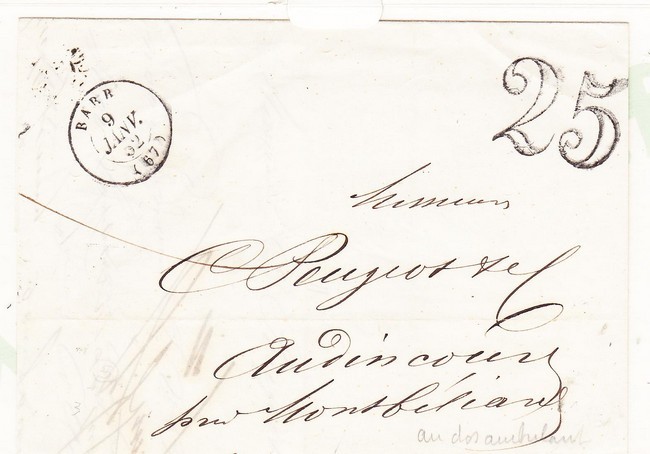 BARR
9
JANV.
52
(67)
25
Messieurs
Peugeot & C
Audincourt
près Montbéliard
au dos ambulant